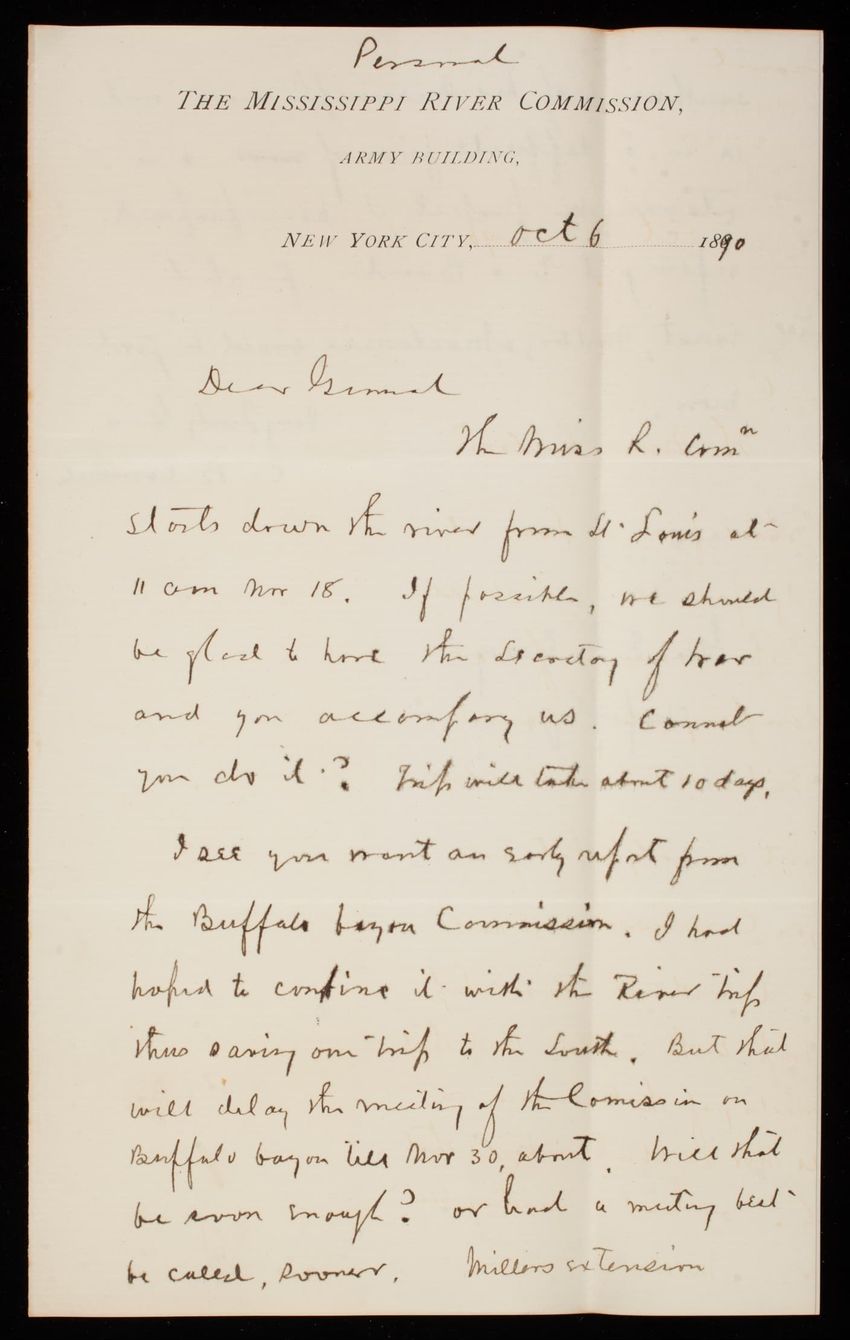 Personal
THE MISSISSIPPI RIVER COMMISSION,
ARMY BUILDING,
NEW YORK CITY, Oct 6 1890
Dear General
The Miss R. Comn
starts down the river from St. Louis at
11 am Nov 18. If possible, we should
be glad to have the Secretary of War
and you accompany us. Cannot
you do it? Trip will take about 10 days.
I see you want an early report from
the Buffalo bayou Commission. I had
hoped to combine it with the River trip
thus saving one trip to the South. But that
will delay the meeting of the Comission on
Buffalo bayou till Nov 30, about. Will that
be soon enough? or had a meeting best
be called, sooner. Millers extension